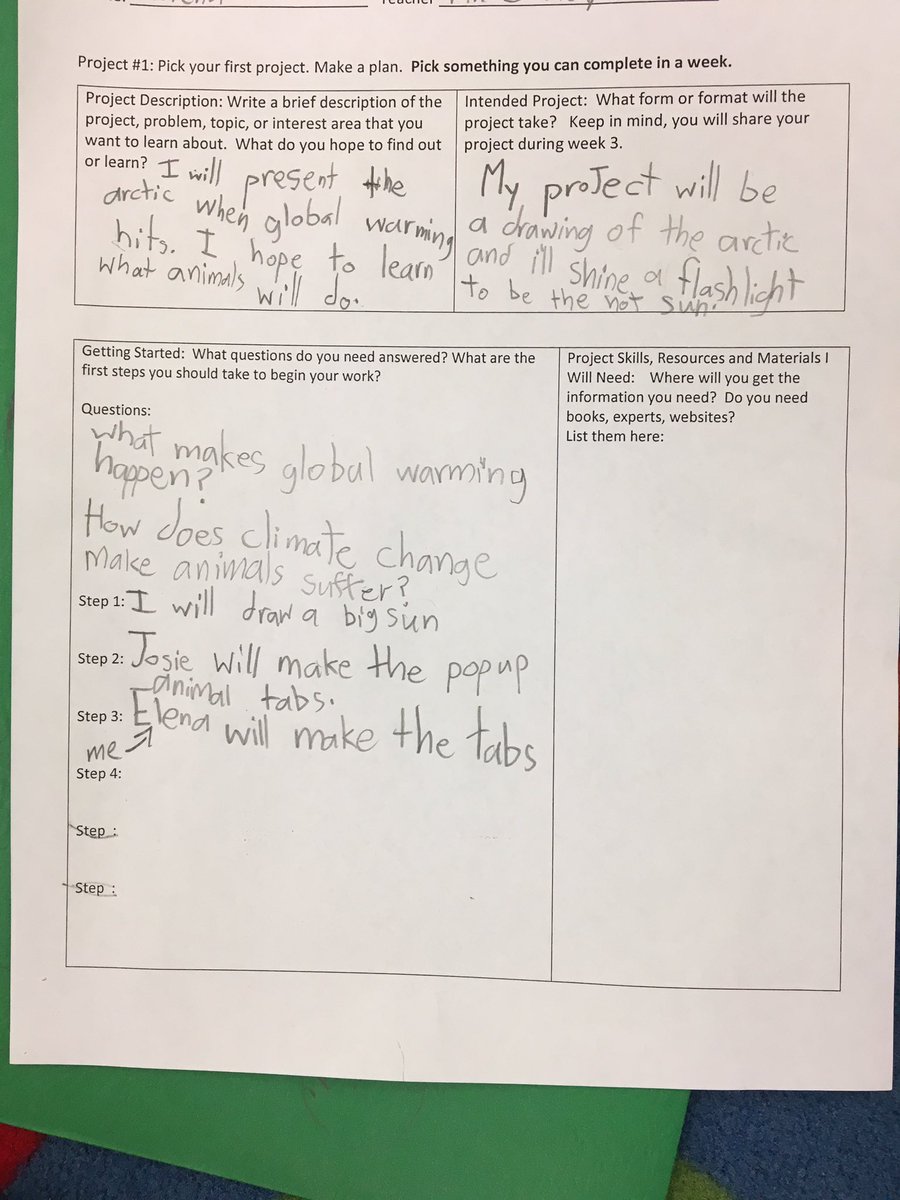 Teacher
Project #1: Pick your first project. Make a plan. Pick something you can complete in a week.
Project Description: Write a brief description of the
project, problem, topic, or interest area that you
want to learn about. What do you hope to find out
or learn? I will present the
arctic when global warming
hits. I hope to learn
what animals will do.
Intended Project: What form or format will the
project take? Keep in mind, you will share your
project during week 3.
My project will be
a drawing of the arctic
and i'll shine a flashlight
to be the hot sun.
Getting Started: What questions do you need answered? What are the
first steps you should take to begin your work?
Questions:
what makes global warming
happen?
How does climate change
Make animals suffer?
Step 1: I will draw a big sun
Step 2: Josie will make the popup
animal tabs.
Step 3: Elena will make the tabs
me
Step 4:
Step :
Step :
Project Skills, Resources and Materials I
Will Need: Where will you get the
information you need? Do you need
books, experts, websites?
List them here: